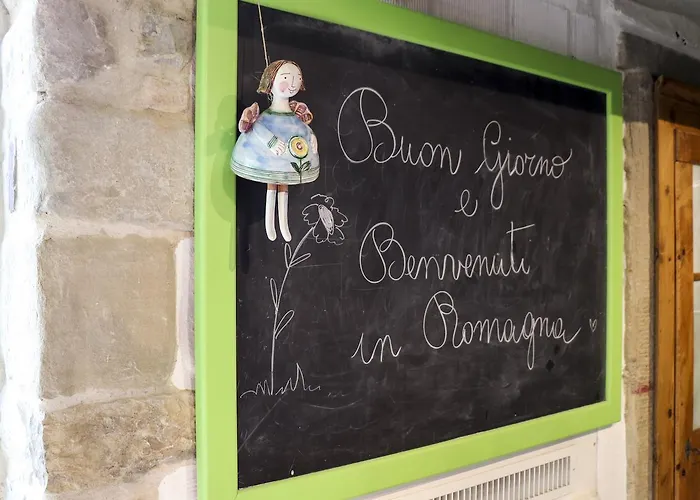 Buon Giorno
e
Benvenuti
in Romagna